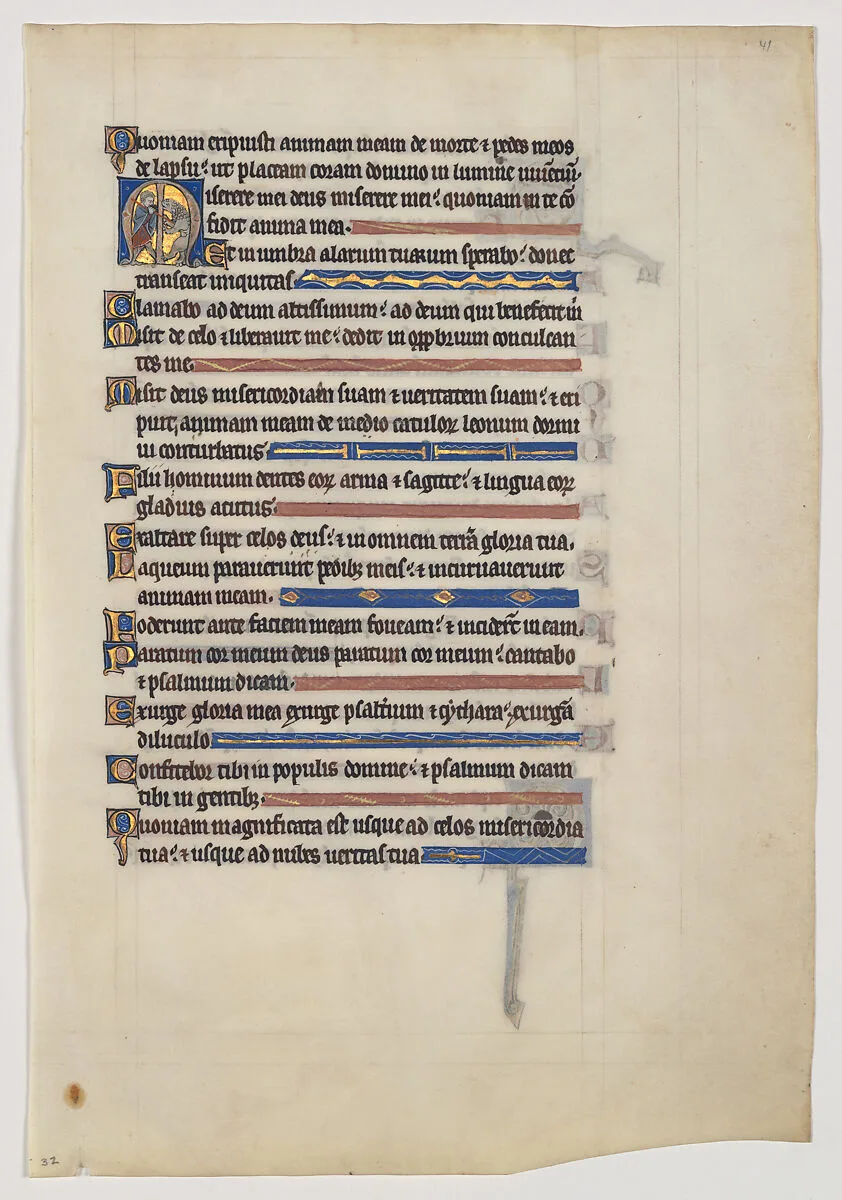 41
Quoniam eripuisti animam meam de morte ⁊ pedes meos
de lapsu: ut placeam coram domino in lumine
Miserere mei deus miserere mei: quoniam in te cō
fidit anima mea.
Et in umbra alarum tuarum sperabo: donec
transeat iniquitas.
Clamabo ad deum altissimum: ad deum qui benefecit m̄
Misit de celo ⁊ liberauit me: dedit in obprium conculcan
tes me.
Misit deus misericordiam suam ⁊ ueritatem suam: ⁊ eri
puit animam meam de medio catuloꝝ leonum dormi
ui conturbatus.
Filii hominum dentes eoꝝ arma ⁊ sagitte: ⁊ lingua eoꝝ
gladius acutus.
Exaltare super celos deus: ⁊ in omnem terrā gloria tua.
Laqueum parauerunt pedibꝫ meis: ⁊ incuruauerunt
animam meam.
Foderunt ante faciem meam foueam: ⁊ inciderūt in eam.
Paratum cor meum deus paratum cor meum: cantabo
⁊ psalmum dicam.
Exurge gloria mea exurge psaltium ⁊ cythara: exurgā
diluculo.
Confitebor tibi in populis domine: ⁊ psalmum dicam
tibi in gentibꝫ.
Quoniam magnificata est usque ad celos misericordia
tua: ⁊ usque ad nubes ueritas tua
32